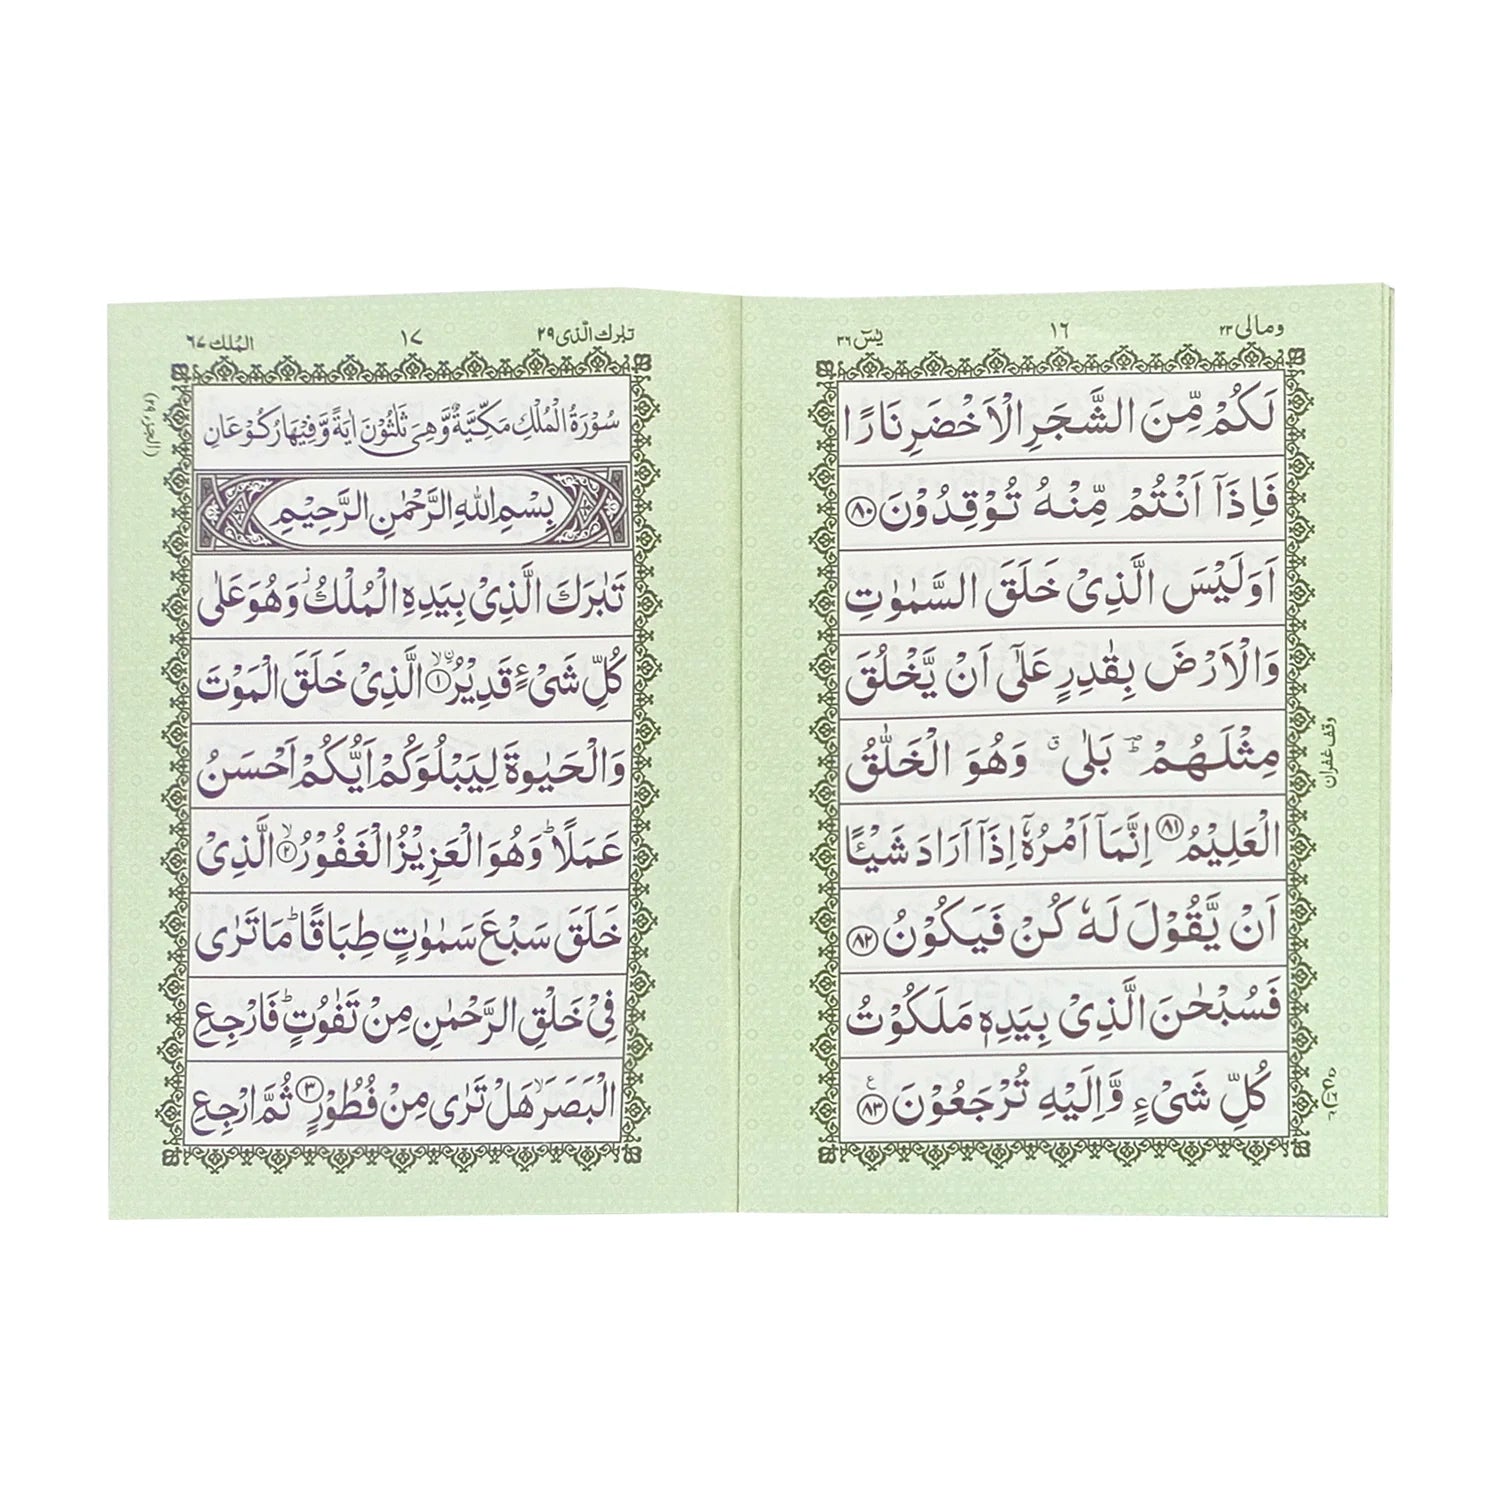 ومالی ۲۳
۱۶
یٰسٓ ۳۶
لَكُمْ مِّنَ الشَّجَرِ الْاَخْضَرِ نَارًا
فَاِذَاۤ اَنْتُمْ مِّنْهُ تُوْقِدُوْنَ ۸۰
اَوَلَيْسَ الَّذِىْ خَلَقَ السَّمٰوٰتِ
وَالْاَرْضَ بِقٰدِرٍ عَلٰٓى اَنْ يَّخْلُقَ
مِثْلَهُمْ ؕ بَلٰى ۗ وَهُوَ الْخَلّٰقُ
الْعَلِيْمُ ۸۱ اِنَّمَاۤ اَمْرُهٗۤ اِذَاۤ اَرَادَ شَيْـًٔا
اَنْ يَّقُوْلَ لَهٗ كُنْ فَيَكُوْنُ ۸۲
فَسُبْحٰنَ الَّذِىْ بِيَدِهٖ مَلَكُوْتُ
كُلِّ شَىْءٍ وَّاِلَيْهِ تُرْجَعُوْنَ ۸۳ ع
وقف غفران
تبٰرك الّذى ۲۹
۱۷
الۡمُلك ۶۷
سُوْرَةُ الْمُلْكِ مَكِّيَّةٌ وَّهِىَ ثَلٰثُوْنَ اٰيَةً وَّفِيْهَا رُكُوْعَانِ
بِسْمِ اللّٰهِ الرَّحْمٰنِ الرَّحِيْمِ
تَبٰرَكَ الَّذِىْ بِيَدِهِ الْمُلْكُ ؗ وَهُوَ عَلٰى
كُلِّ شَىْءٍ قَدِيْرُ ۨ ۙ ۱ الَّذِىْ خَلَقَ الْمَوْتَ
وَالْحَيٰوةَ لِيَبْلُوَكُمْ اَيُّكُمْ اَحْسَنُ
عَمَلًا ؕ وَهُوَ الْعَزِيْزُ الْغَفُوْرُ ۙ ۲ الَّذِىْ
خَلَقَ سَبْعَ سَمٰوٰتٍ طِبَاقًا ؕ مَا تَرٰى
فِىْ خَلْقِ الرَّحْمٰنِ مِنْ تَفٰوُتٍ ؕ فَارْجِعِ
الْبَصَرَ ۙ هَلْ تَرٰى مِنْ فُطُوْرٍ ۳ ثُمَّ ارْجِعِ